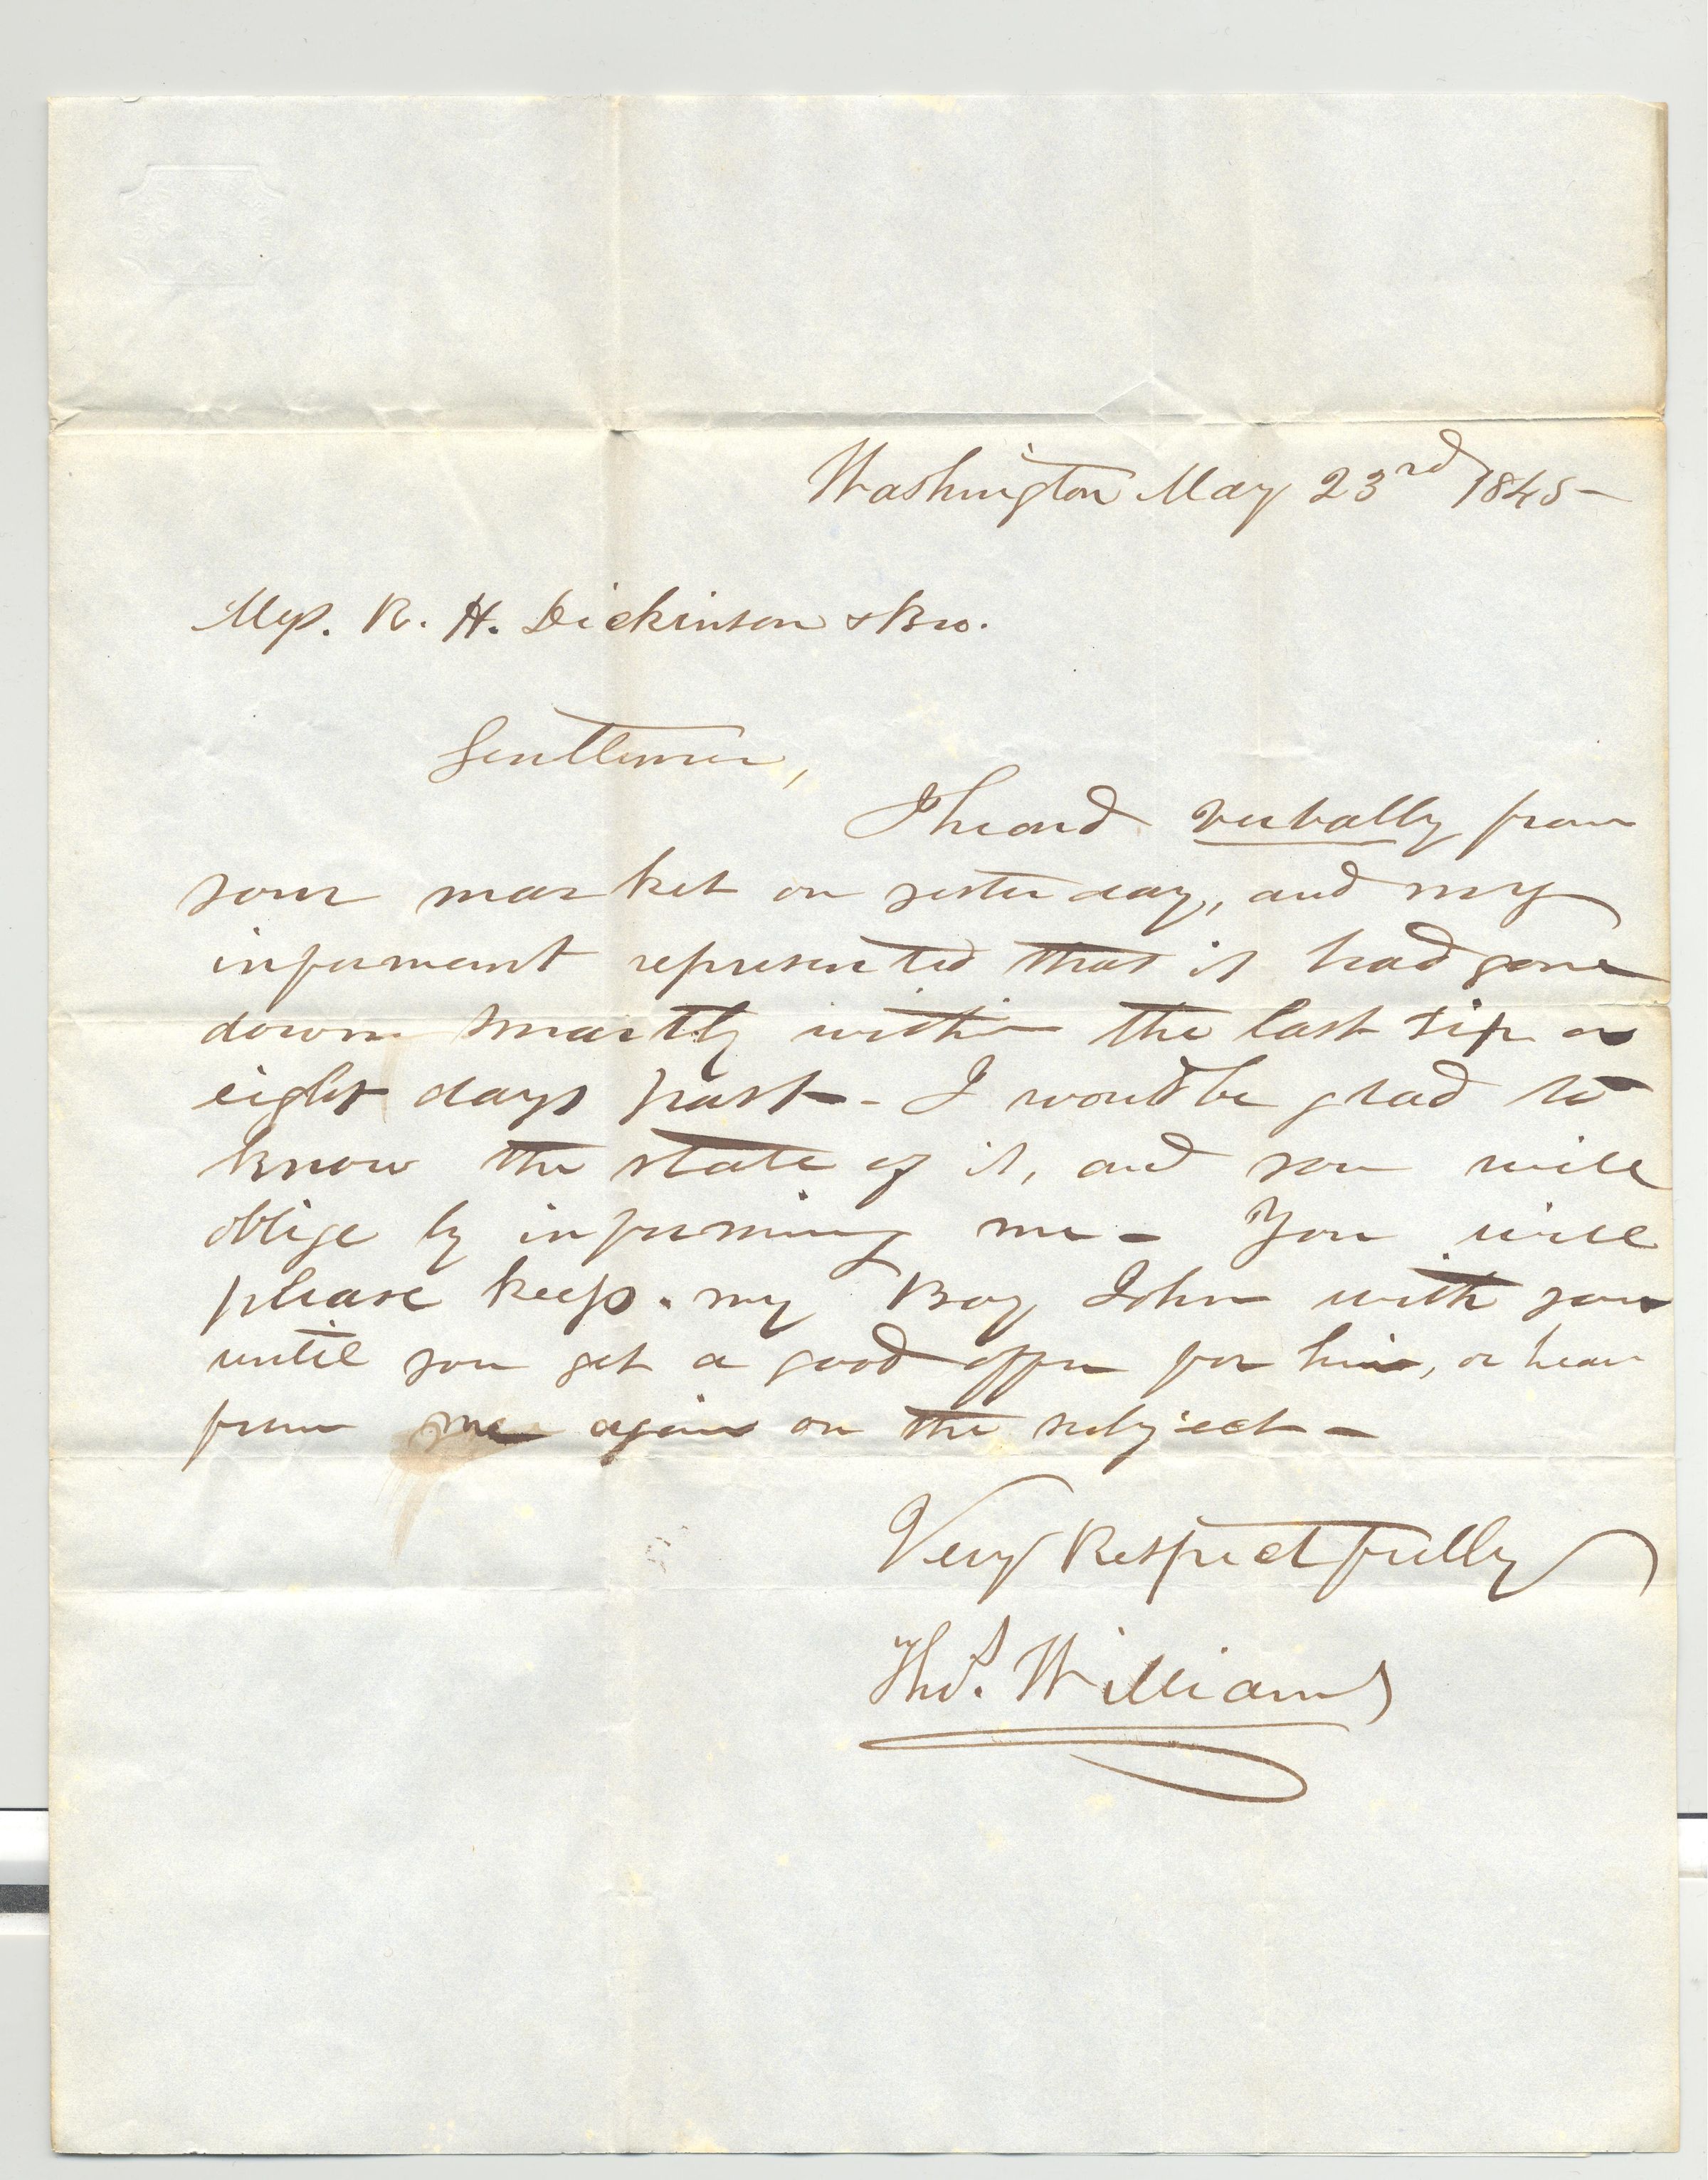 Washington May 23rd 1845-
Mess. R. H. Dickinson & Bro.
Gentlemen,
I heard verbally from
your market on yesterday, and my
informant represented that it had gone
down smartly within the last six or
eight days past - I would be glad to
know the state of it, and you will
oblige by informing me - You will
please keep my Boy John with you
until you get a good offer for him, or hear
from me again on the subject -
Very Respectfully
Thos. Williams